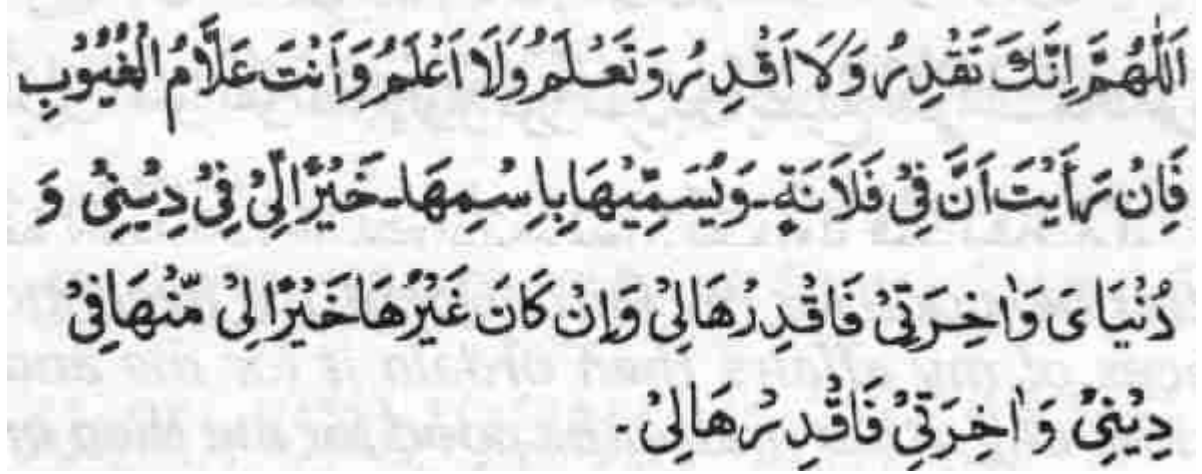 اَللّٰهُمَّ اِنَّكَ تَقْدِرُ وَلَا اَقْدِرُ وَتَعْلَمُ وَلَا اَعْلَمُ وَاَنْتَ عَلَّامُ الْغُيُوْبِ
فَاِنْ رَأَيْتَ اَنَّ فِيْ فَلَانَةٍ۔وَيُسَمِّيْهَا بِاِسْمِهَا۔خَيْرًا لِّيْ فِيْ دِيْنِيْ وَ
دُنْيَايَ وَاٰخِرَتِيْ فَاقْدِرْهَا لِيْ وَاِنْ كَانَ غَيْرُهَا خَيْرًا لِيْ مِّنْهَا فِيْ
دِيْنِيْ وَاٰخِرَتِيْ فَاقْدِرْهَا لِيْ۔